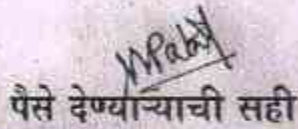 पैसे देण्याऱ्याची सही